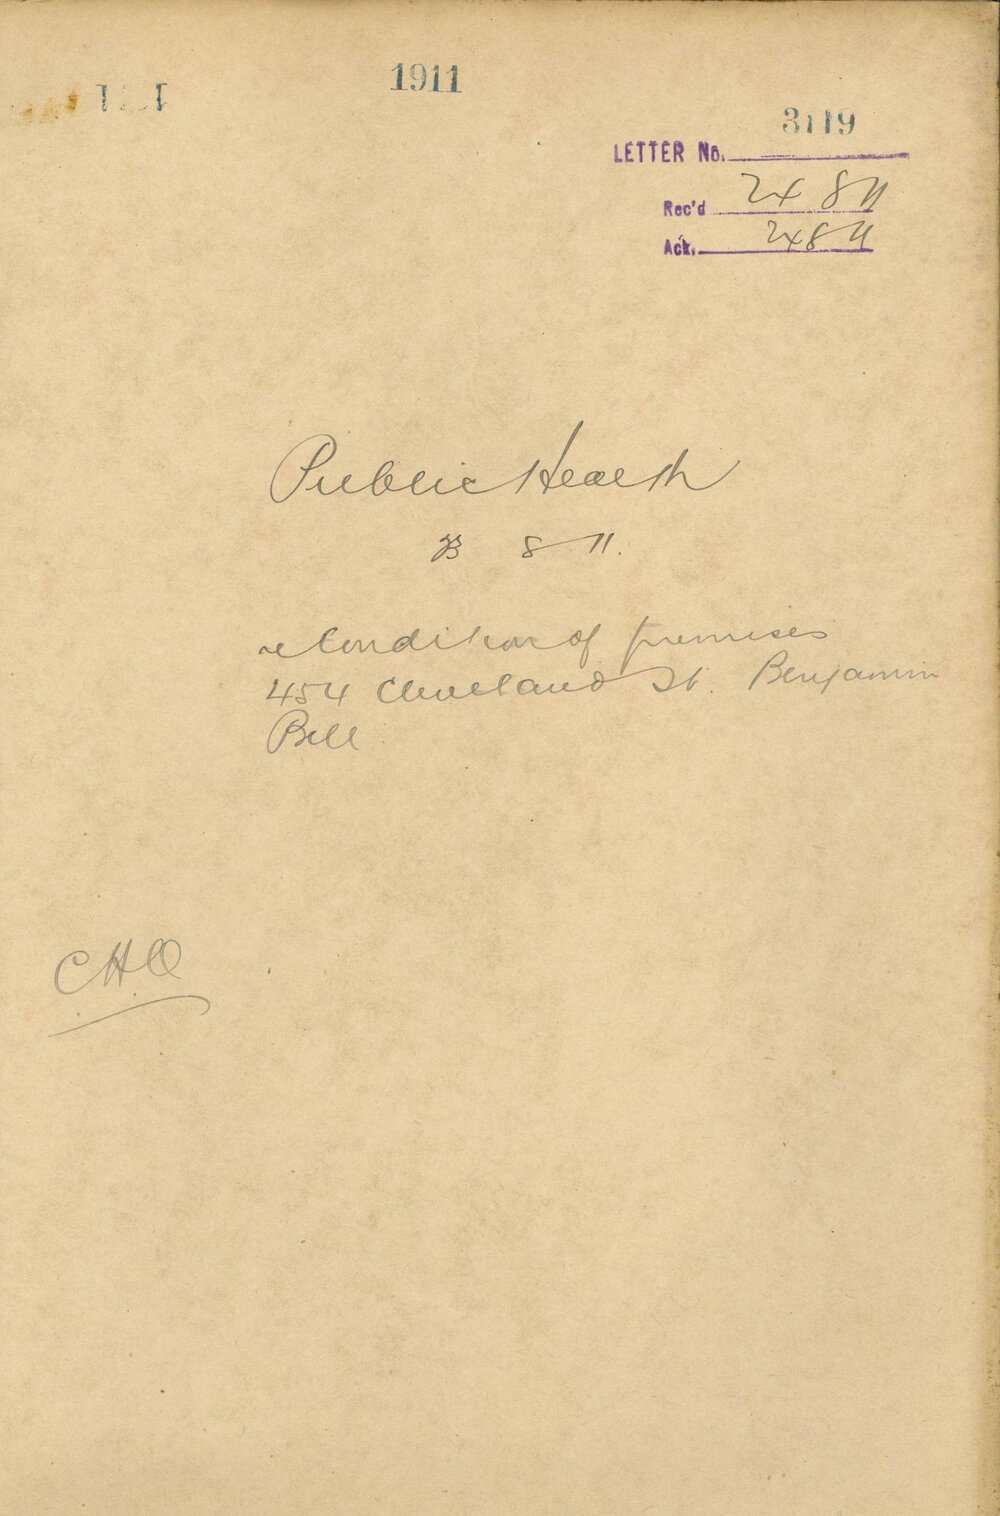 1911
3119
LETTER No.
Rec'd 24 8 11
Ack. 24 8 11
Public Health
23 8 11.
re Condition of premises
454 Cleveland St. Benjamin
Bell
CHO